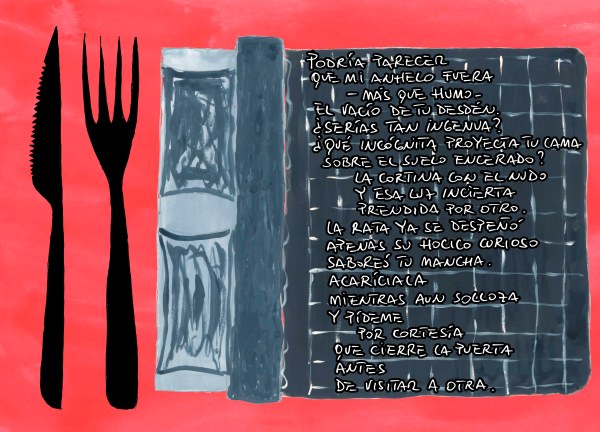 PODRÍA PARECER
QUE MI ANHELO FUERA
- MÁS QUE HUMO -
EL VACÍO DE TU DESDÉN,
¿SERÍAS TAN INGENUA?
¿QUÉ INCÓGNITA PROYECTA TU CAMA
SOBRE EL SUELO ENCERADO?
LA CORTINA CON EL NUDO
Y ESA LUZ INCIERTA
PRENDIDA POR OTRO.
LA RATA YA SE DESPEÑÓ
APENAS SU HOCICO CURIOSO
SABOREÓ TU MANCHA.
ACARÍCIALA
MIENTRAS AUN SOLLOZA
Y PÍDEME
POR CORTESÍA
QUE CIERRE LA PUERTA
ÁNTES
DE VISITAR A OTRA.